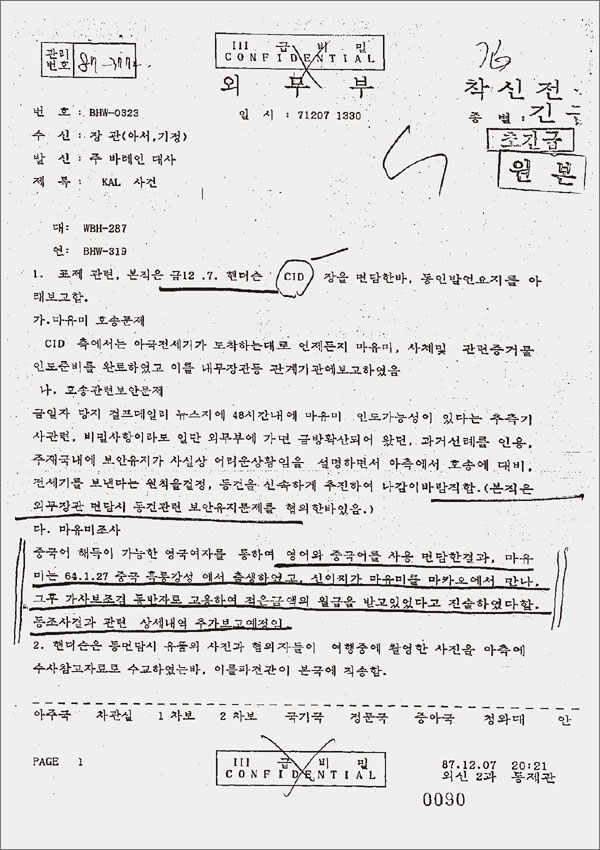 관리
번호 87-377
III 급 비 밀
CONFIDENTIAL
외 무 부
착신전
번 호 : BHW-0323 일 시 : 71207 1330 종 별 : 긴급
수 신 : 장 관(아서,기정)
초긴급
발 신 : 주 바레인 대사
원 본
제 목 : KAL 사건
대: WBH-287
연: BHW-319
1. 표제 관련, 본직은 금12 .7. 핸더슨 CID 장을 면담한바, 동인발언요지를 아
래보고함.
가.마유미 호송문제
CID 측에서는 아국전세기가 도착하는대로 언제든지 마유미, 사체및 관련증거물
인도준비를 완료하였고 이를 내무장관등 관계기관에보고하였음
나. 호송관련보안문제
금일자 당지 걸프데일리 뉴스지에 48시간내에 마유미 인도가능성이 있다는 추측기
사관련, 비밀사항이라도 일단 외무부에 가면 금방확산되어 왔던, 과거선례를 인용,
주재국내에 보안유지가 사실상 어려운상황임을 설명하면서 아측에서 호송에 대비,
전세기를 보낸다는 원칙을결정, 동건을 신속하게 추진하여 나감이바람직함.(본직은
외무장관 면담시 동건관련 보안유지문제를 협의한바있음.)
다. 마유미조사
중국어 해득이 가능한 영국여자를 통하여 영어와 중국어를 사용 면담한결과, 마유
미는 64.1.27 중국 흑룡강성 에서 출생하였고, 신이찌가 마유미를 마카오에서 만나,
그후 가사보조겸 동반자로 고용하여 적은금액의 월급을 받고있었다고 진술하였다함.
동조사결과 관련 상세내역 추가보고예정임
2. 핸더슨은 동면담시 유품의 사진과 혐의자들이 여행중에 촬영한 사진을 아측에
수사참고자료로 수교하였는바, 이를파전관이 본국에 직송함.
아주국 차관실 1차보 2차보 국기국 정문국 중아국 청와대 안
PAGE 1
III 급 비 밀
CONFIDENTIAL
87.12.07 20:21
외신 2과 통제관
0090